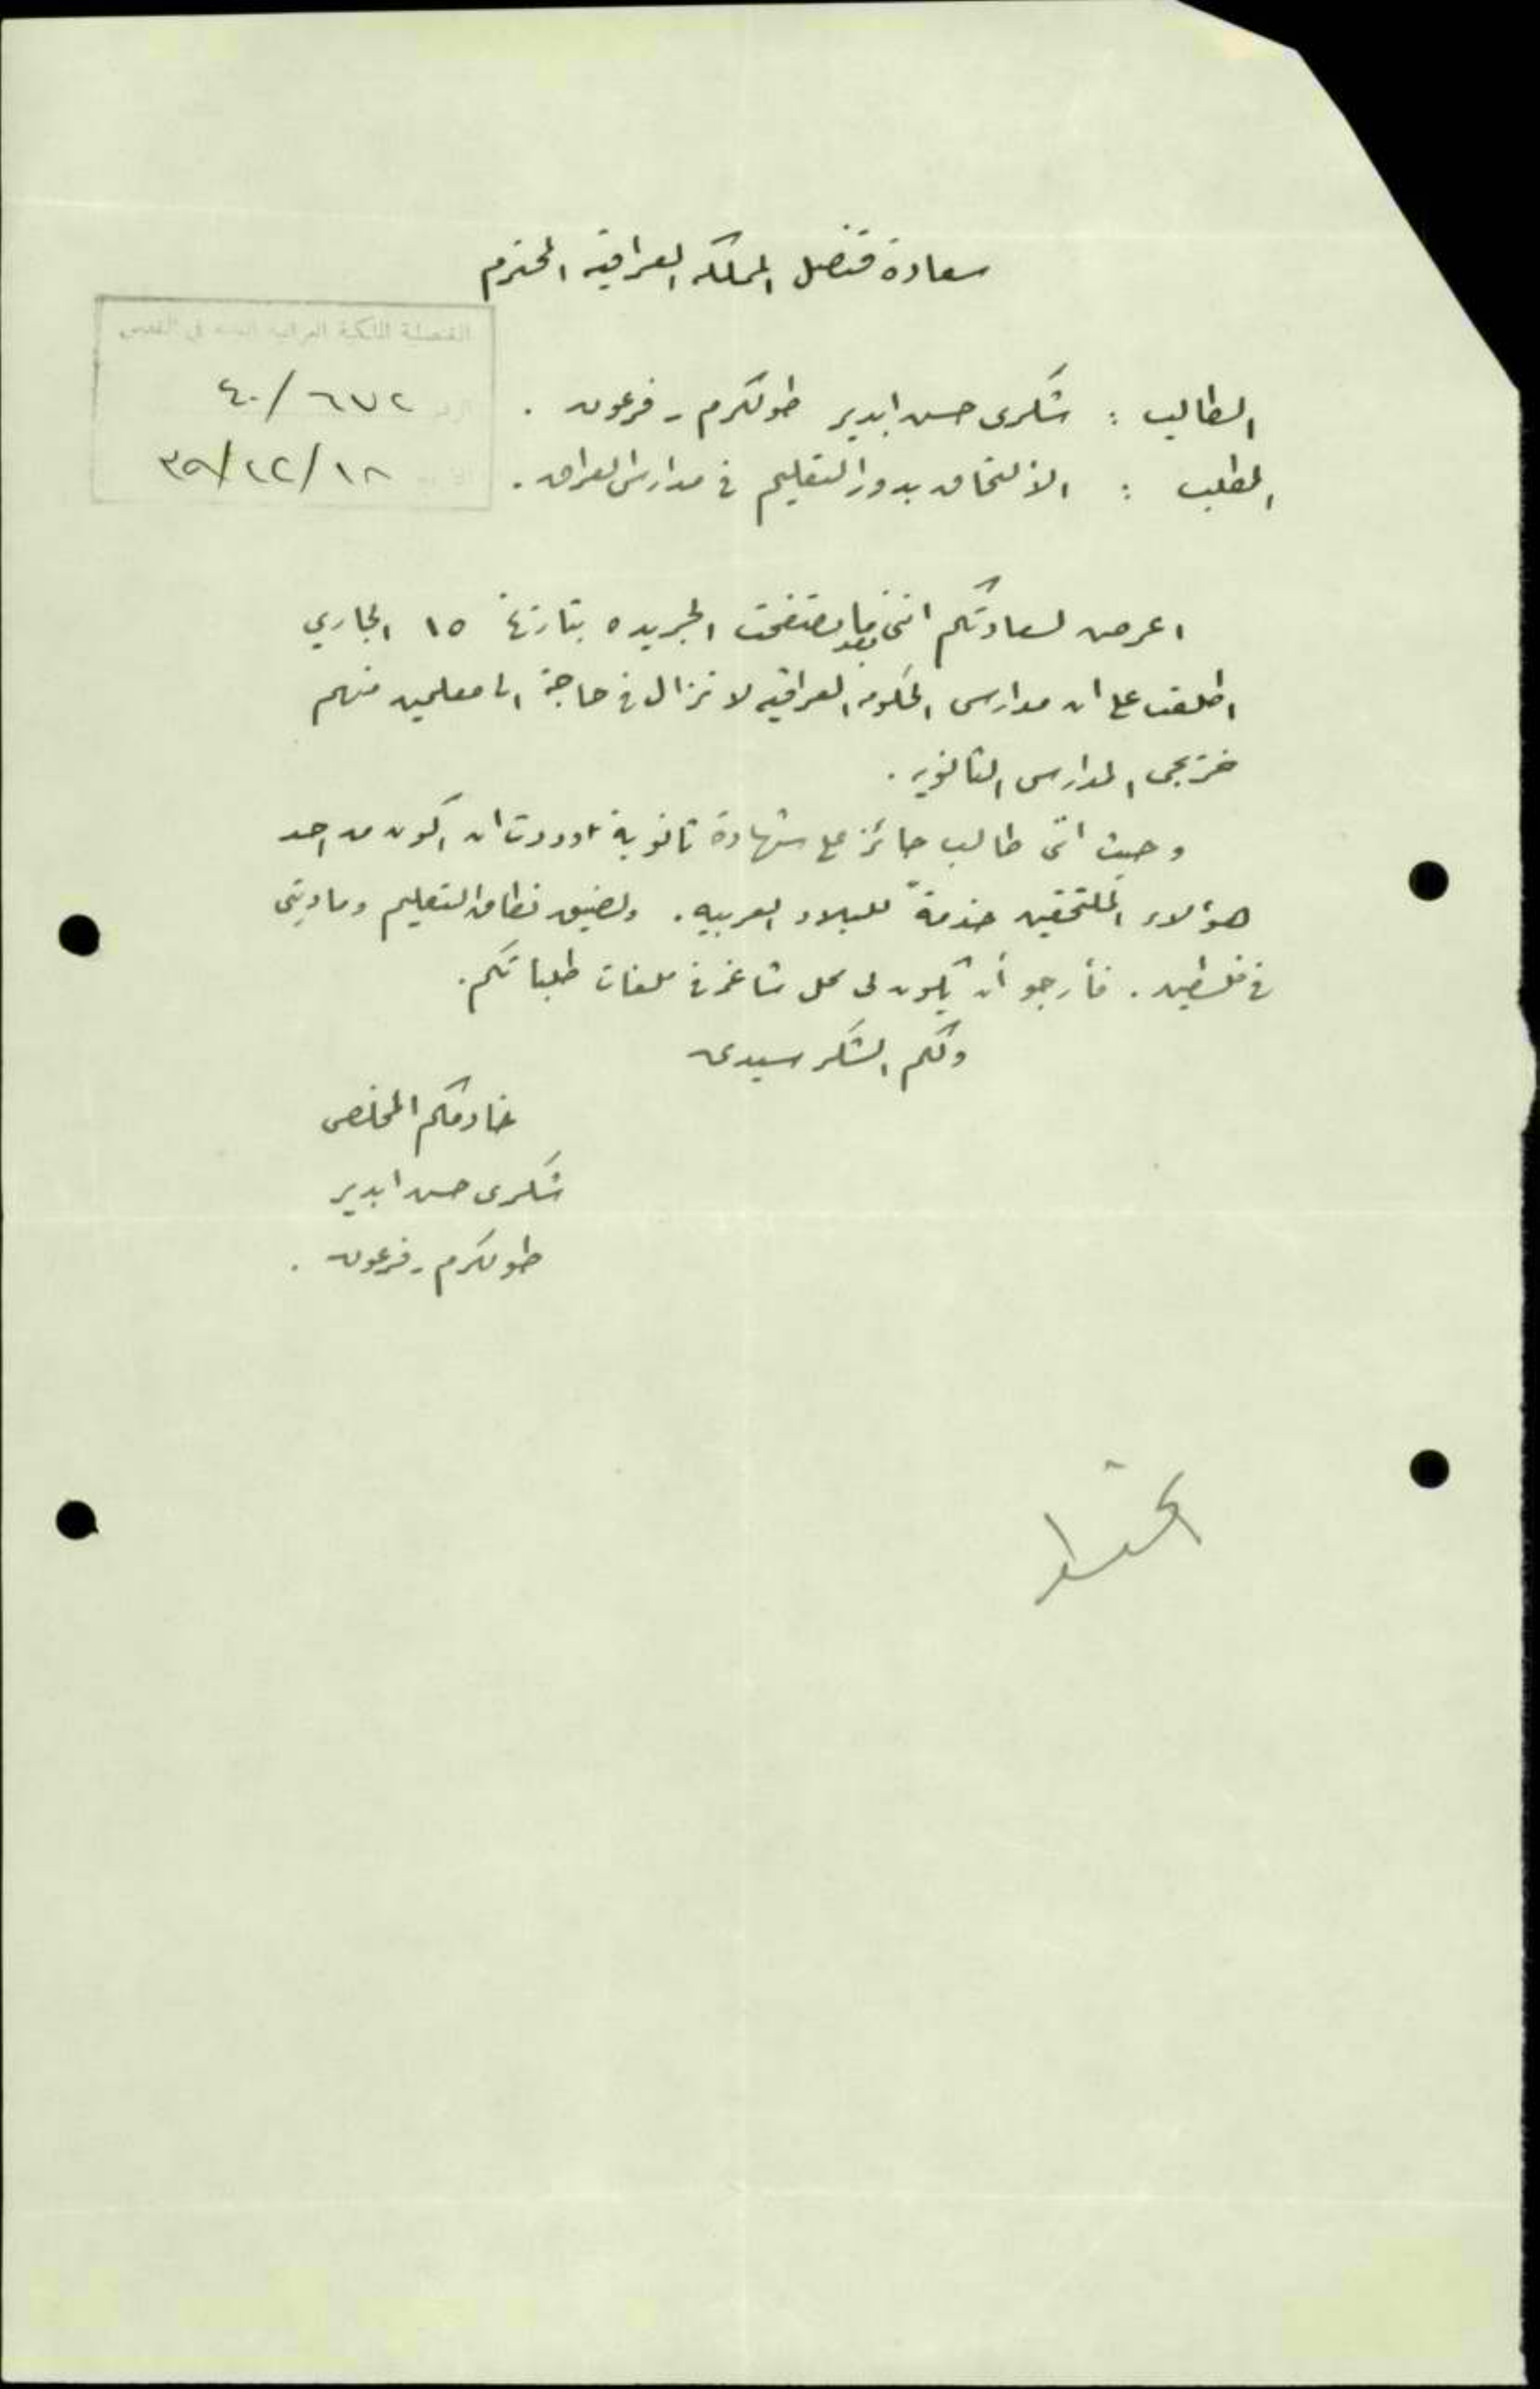 سعادة قنصل المملكه العراقيه المحترم
القنصلية الملكية العراقية العامة في القدس
٦٧٢/٤٠
٣٩/١٢/١٨
الطالب : شكرى حسن ابدير طولكرم - فرعون .
المطلب : الالتحاق بدور التعليم في مدارس العراق .
اعرض لسعادتكم انني بعدما تصفحت الجريده بتاريخ ١٥ الجاري
اطلعت على ان مدارس الحكومه العراقيه لا تزال في حاجة الى معلمين منهم
خريجى المدارس الثانويه .
وحيث انى طالب حائز على شهادة ثانوية وددت ان اكون من احد
هؤلاء الملتحقين خدمةً للبلاد العربيه . ولضيق نطاق التعليم وماديتى
في فلسطين . فأرجو أن يكون لى محل شاغر في ملفات طلباتكم .
ولكم الشكر سيدى
خادمكم المخلص
شكرى حسن ابدير
طولكرم - فرعون .